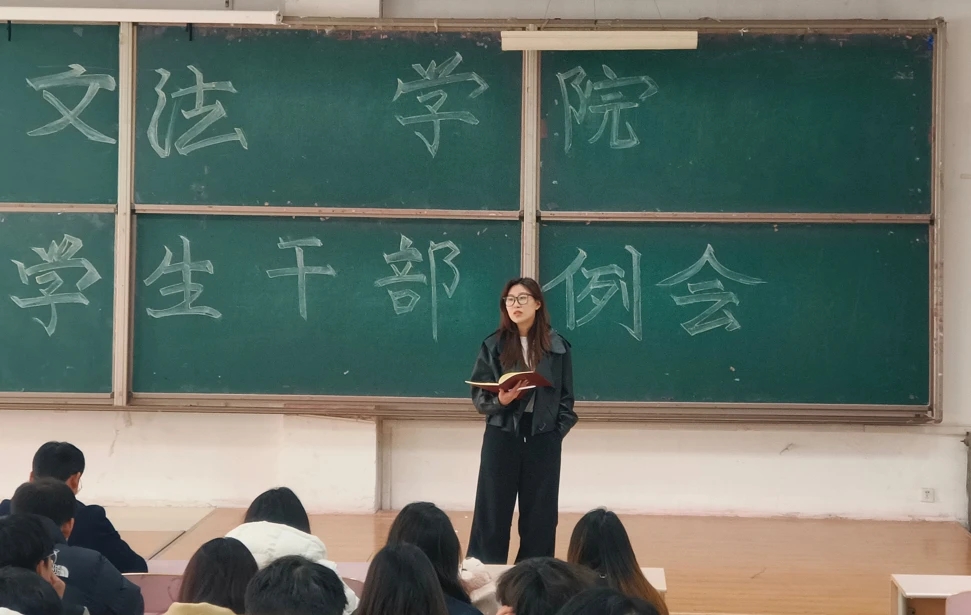 文法学院
学生干部例会